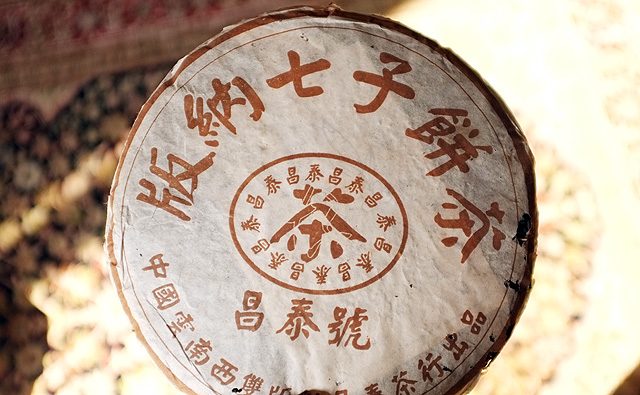 版納七子餅茶
昌泰昌泰昌泰昌泰昌泰昌泰昌泰昌泰
茶
昌泰號
中國雲南西雙版 昌泰茶行出品